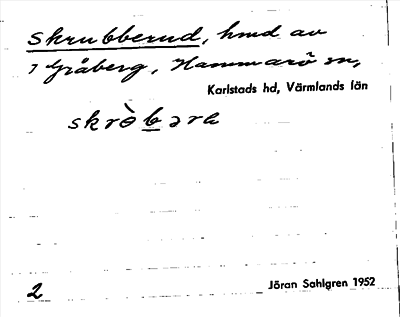 Skrubberud, hmd av
7 Gråberg, Hammarö sn,
Karlstads hd, Värmlands län
skrò̱bərɯ
2
Jöran Sahlgren 1952